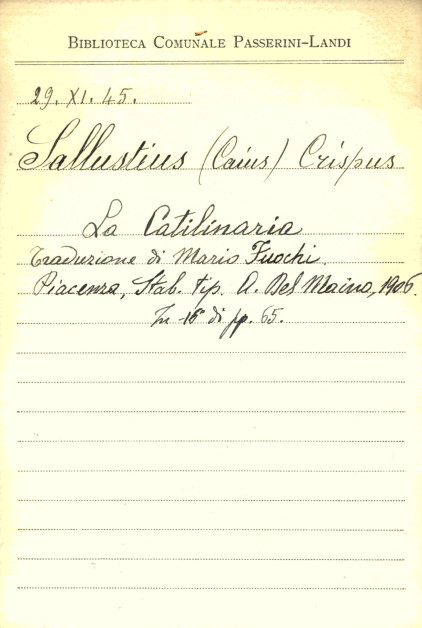 BIBLIOTECA COMUNALE PASSERINI-LANDI
29. XI. 45.
Sallustius (Caius) Crispus
La Catilinaria
Traduzione di Mario Fuochi.
Piacenza, Stab. tip. A. Del Maino, 1906.
In -16° di pp. 65.